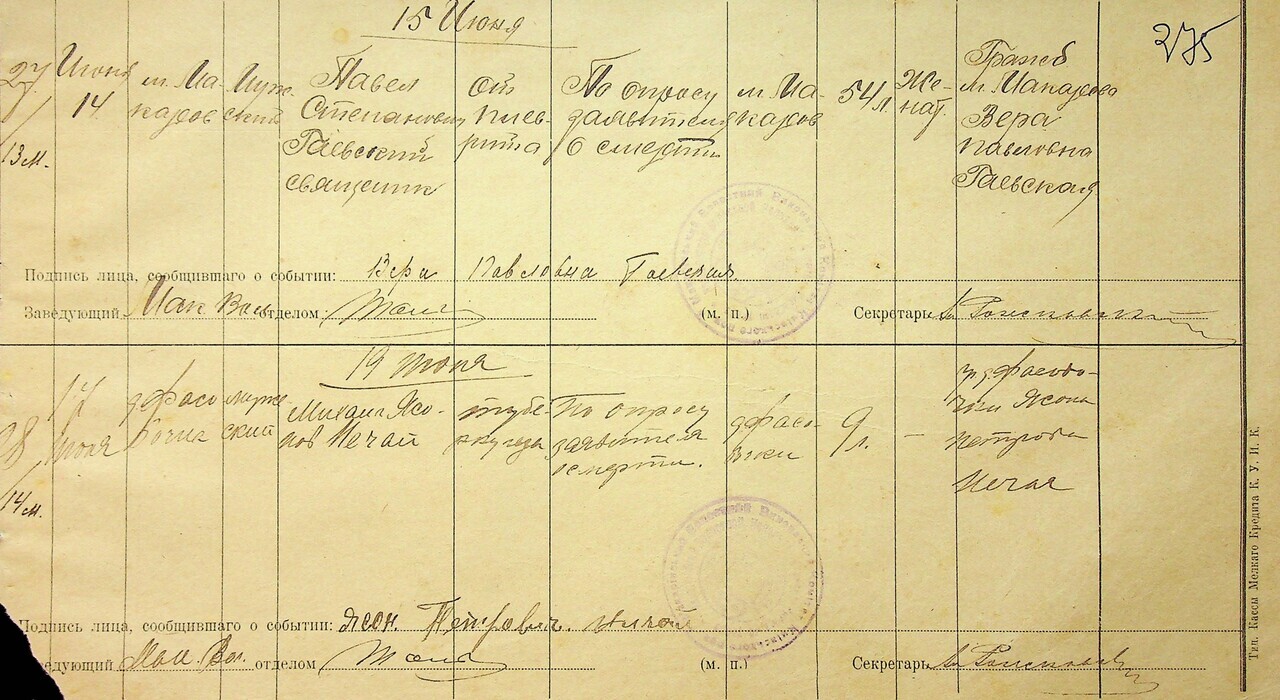 15 Июня
275
27
13 м.
Июня
14
м. Ма-
каров
Муж-
ской
Павел
Степанович
Гаевский
священник
от
плев-
рита
По опросу
заявителя
о смерти
м. Ма-
каров
54 л.
Же-
нат.
Гражд
м. Макарова
Вера
Павловна
Гаевская
Подпись лица, сообщившего о событии: Вера Павловна Гаевская
Заведующий Мак. Вол. отделом (м. п.) Секретарь
19 Июня
28
14 м.
17
Июня
д. Фасо-
вочка
мужс
ский
Михаил Ясо-
нов Нечай
тубе-
ркулеза
По опросу
заявителя
о смерти.
д Фасо-
вочки
9 л.
—
гр. д. Фасово-
чки Ясона
Петрова
Нечая
Подпись лица, сообщившего о событии: Ясон. Петрович. Нечай
Заведующий Мак. Вол. отделом (м. п.) Секретарь
Тип. Кассы Мелкаго Кредита К. У. И. К.